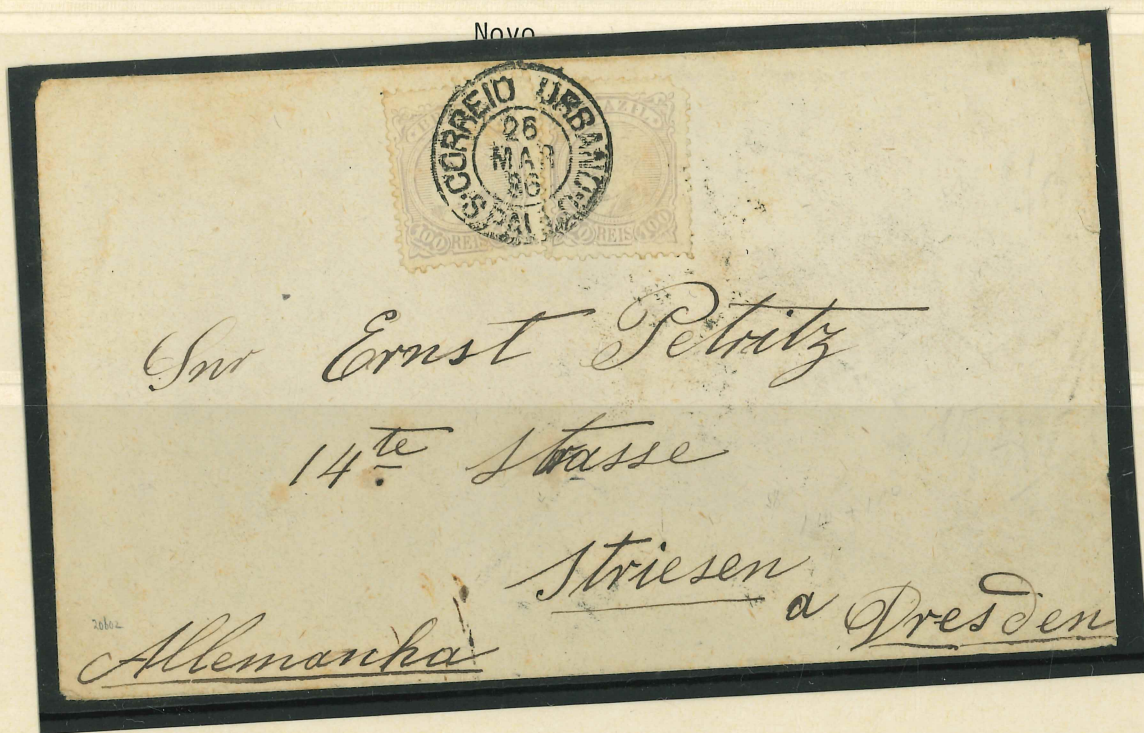 Novo
CORREIO URBANO
26
MAR
86
S. PAULO
BRAZIL
100 REIS
REIS 100
Snr Ernst Petritz
14te Strasse
Striesen
a Dresden
20602
Allemanha